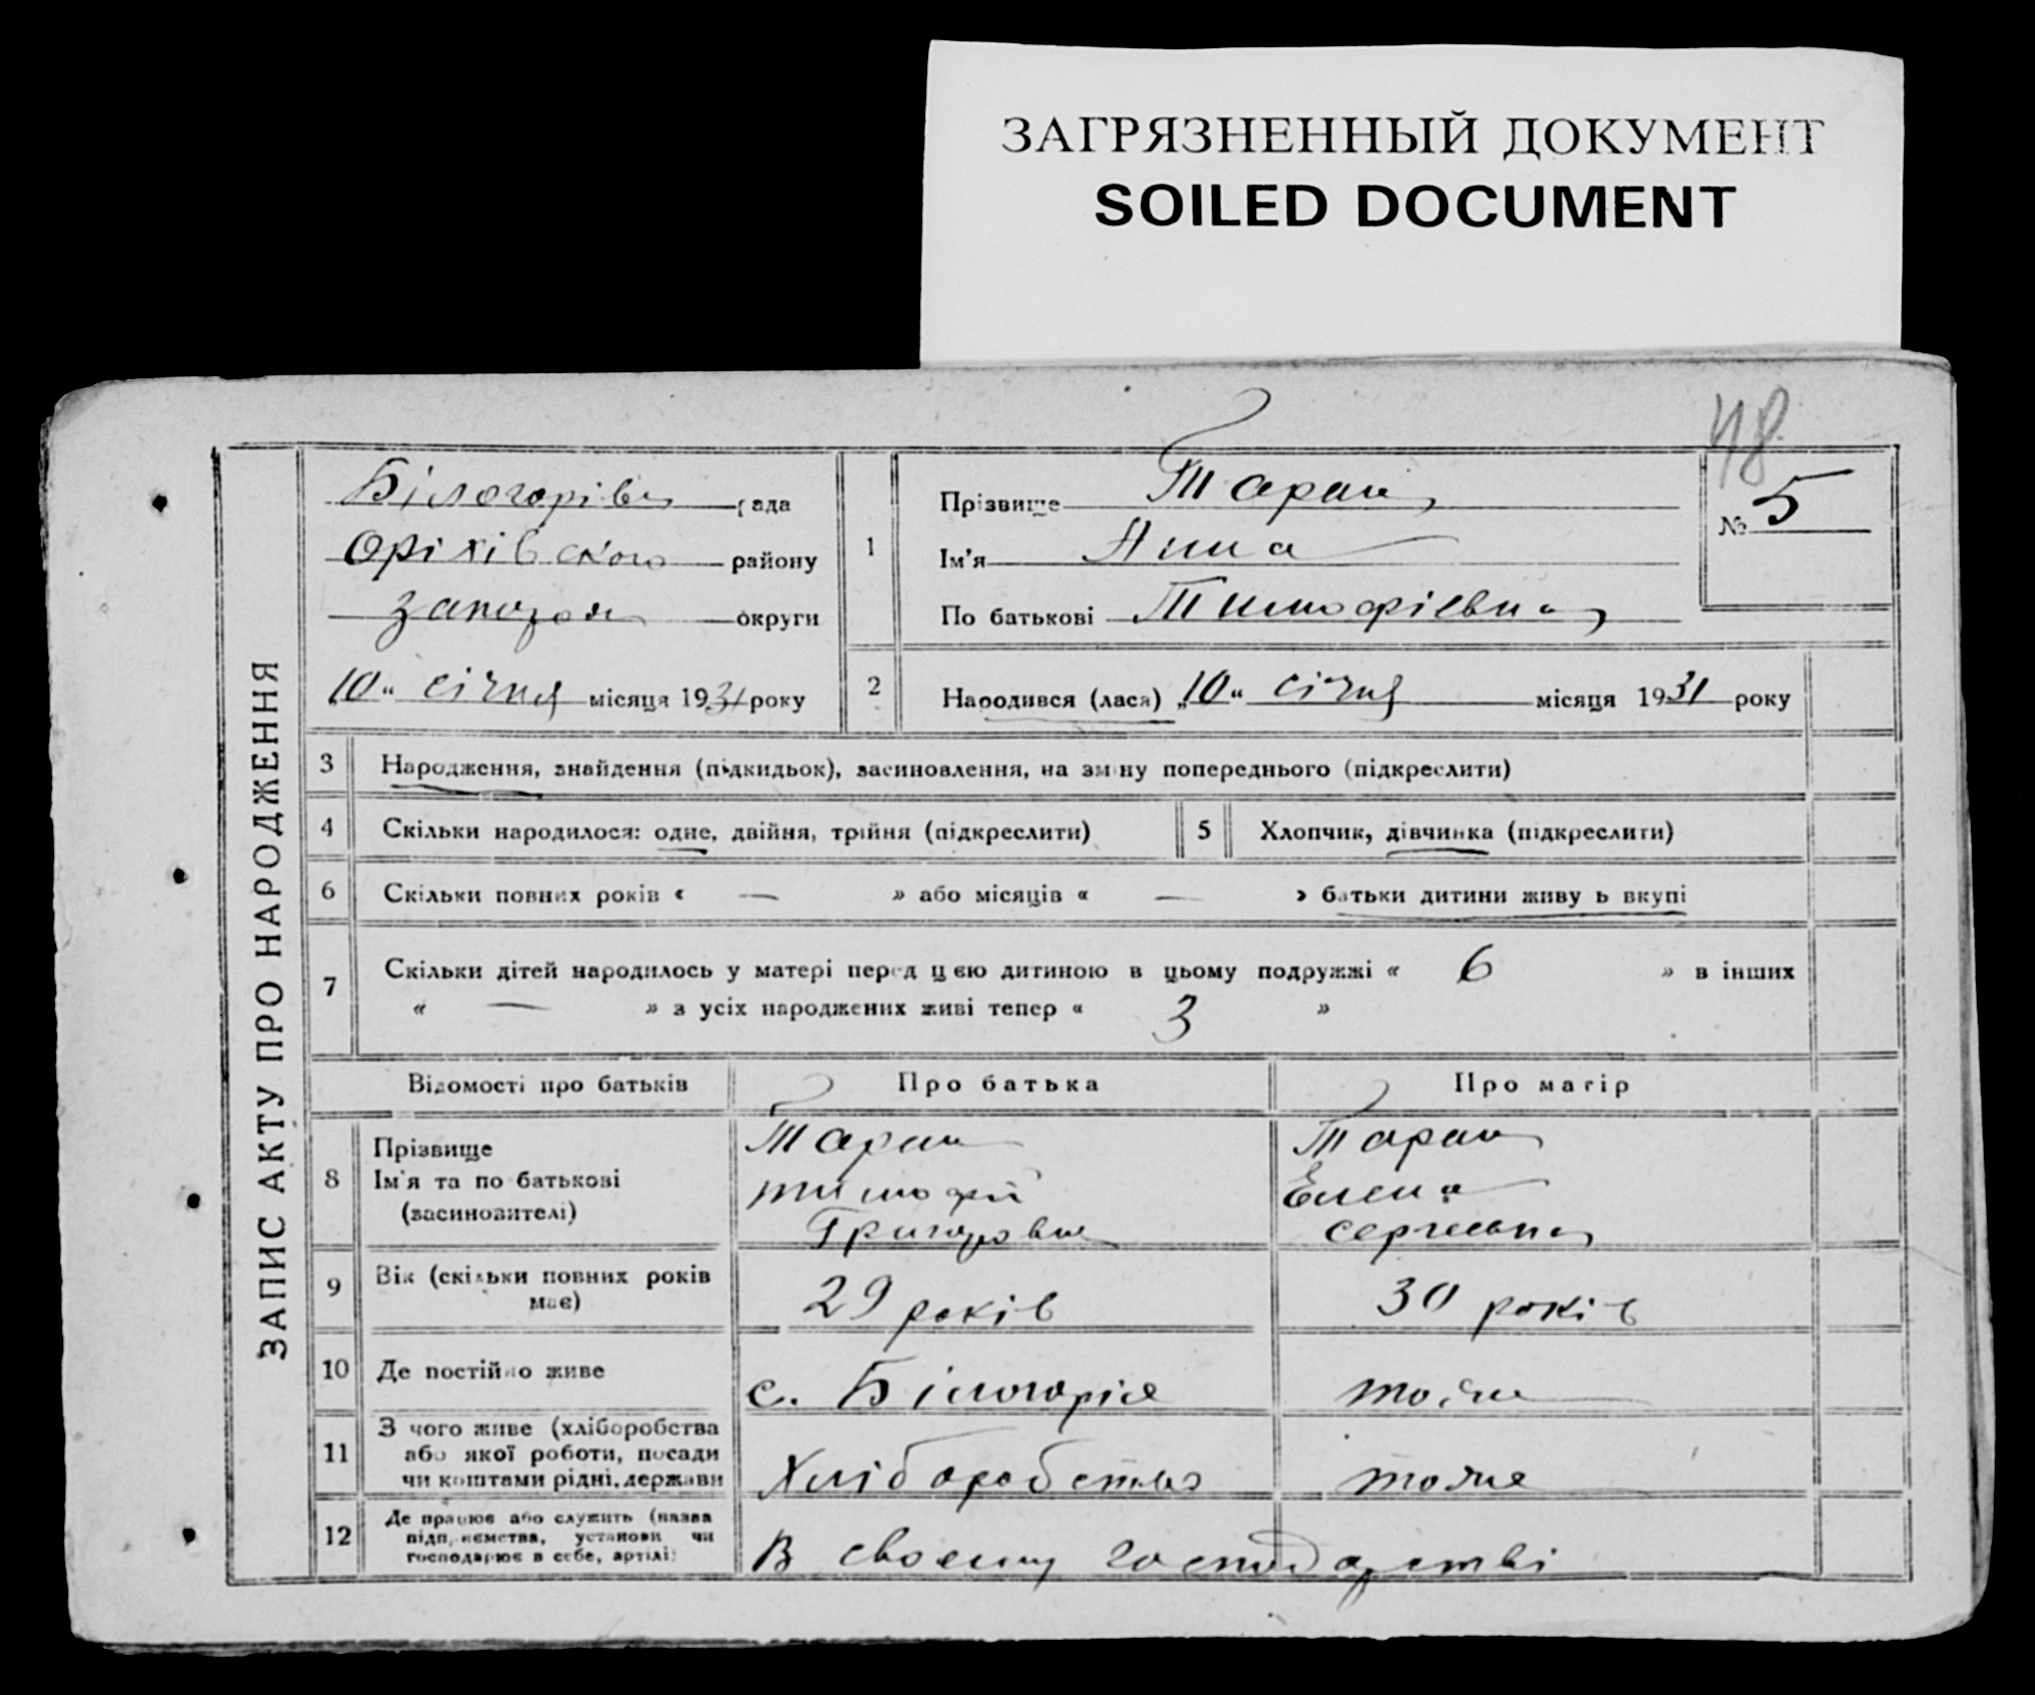 ЗАГРЯЗНЕННЫЙ ДОКУМЕНТ
SOILED DOCUMENT
48
ЗАПИС АКТУ ПРО НАРОДЖЕННЯ
рада
Оріхівского району
округи
„10“ січня місяця 1931 року
1
Прізвище Таран
Ім'я Анна
По батькові Тимофіевна
№ 5
2
Народився (лася) „10“ січня місяця 1931 року
3 Народження, знайдення (підкидьок), засиновлення, на зміну попереднього (підкреслити)
4 Скільки народилося: одне, двійня, трійня (підкреслити)
5 Хлопчик, дівчинка (підкреслити)
6 Скільки повних років « — » або місяців « — » батьки дитини живуть вкупі
7 Скільки дітей народилось у матері перед цією дитиною в цьому подружжі « 6 » в інших
« — » з усіх народжених живі тепер « 3 »
Відомості про батьків
Про батька
Про матір
8 Прізвище
Ім'я та по батькові
(засиновителі)
Таран
Тимофій
Таран
Елена
9 Вік (скільки повних років
має)
29 років
30 років
10 Де постійно живе
с. Білогорієтоже
11 З чого живе (хліборобства
або якої роботи, посади
чи коштами рідні, держави
Хліборобство
тоже
12 Де працює або служить (назва
підприємства, установи чи
господарює в себе, артілі)
В своему господарстві